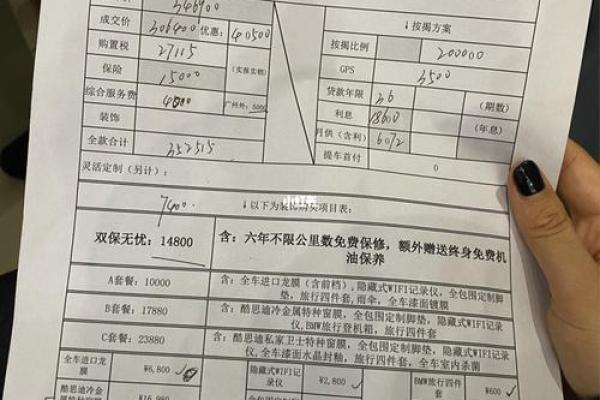 346900
成交价 306400 优惠: 40500
购置税 27115
(实报实销)
保险 15000
综合服务费 4000 广州外: 5000
装饰
全款合计 352515
↓按揭方案
按揭比例 200000
GPS 3500
贷款年限 36 (期数)
利息 18600 (年息)
月供(含利) 6072
提车首付 0
灵活定制(另计):
7400
↓以下为装饰购买项目表:
双保无忧: 14800
含: 六年不限公里数免费保修, 额外赠送终身免费机
油保养
A套餐: 10000
含: 全车进口龙膜(含前档), 隐藏式WIFI记录仪, 全包围定制脚
垫, 旅行四件套, 雨伞, 全车漆面镀膜
B套餐: 17880
含: 酷思迪冷金属特种窗膜, 全包围定制脚垫, 隐藏式WIFI记录
仪, BMW旅行登机箱, 旅行四件套
C套餐: 23880
含: 酷思迪私家卫士特种窗膜, 全包围定制脚垫, 隐藏式WIFI记
录仪, 全车漆面水晶封釉, 旅行四件套, 全车室内杀菌
全车进口龙
膜
¥6,800
隐藏式WIFI记
录仪
¥2,800
BMW旅行四件
套
¥600
酷思迪冷金
属特种窗膜
¥16,980